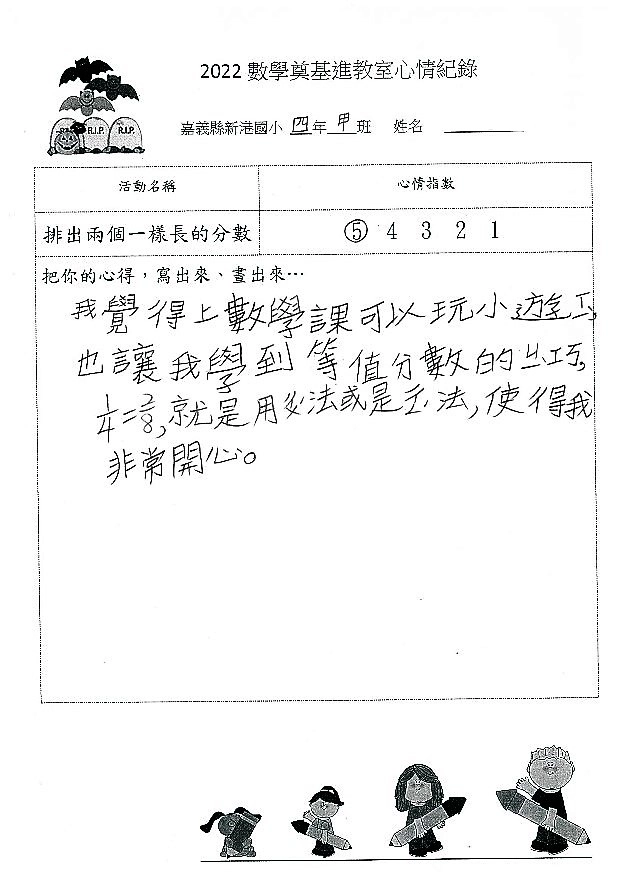 2022 數學奠基進教室心情紀錄
嘉義縣新港國小 四 年 甲 班 姓名
R.I.P. R.I.P.
活動名稱 心情指數
排出兩個一樣長的分數 ⑤ 4 3 2 1
把你的心得，寫出來、畫出來…
我覺得上數學課可以玩小遊
也讓我學到等值分數的
1/4=2/8,就是用 法或是 法,使得我
非常開心。